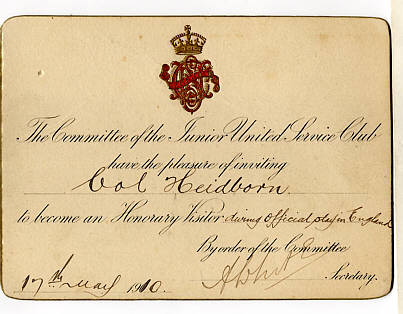 The Committee of the Junior United Service Club
have the pleasure of inviting
Col Heidborn
to become an Honorary Visitor during official stay in England
By order of the Committee
Secretary.
17th May 1910.